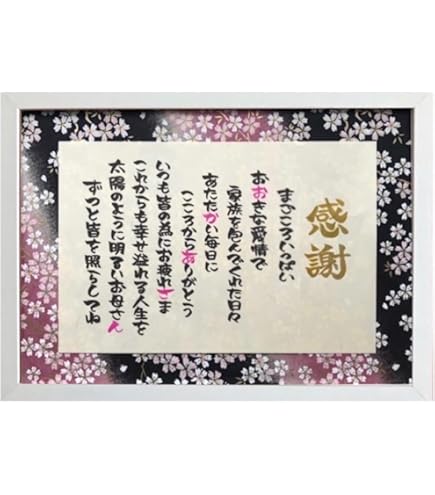 感謝
まごころいっぱい
おおきな愛情で
家族を包んでくれた日々
あたたかい毎日に
こころからありがとう
いつも皆の為にお疲れさま
これからも幸せ溢れる人生を
太陽のように明るいお母さん
ずっと皆を照らしてね